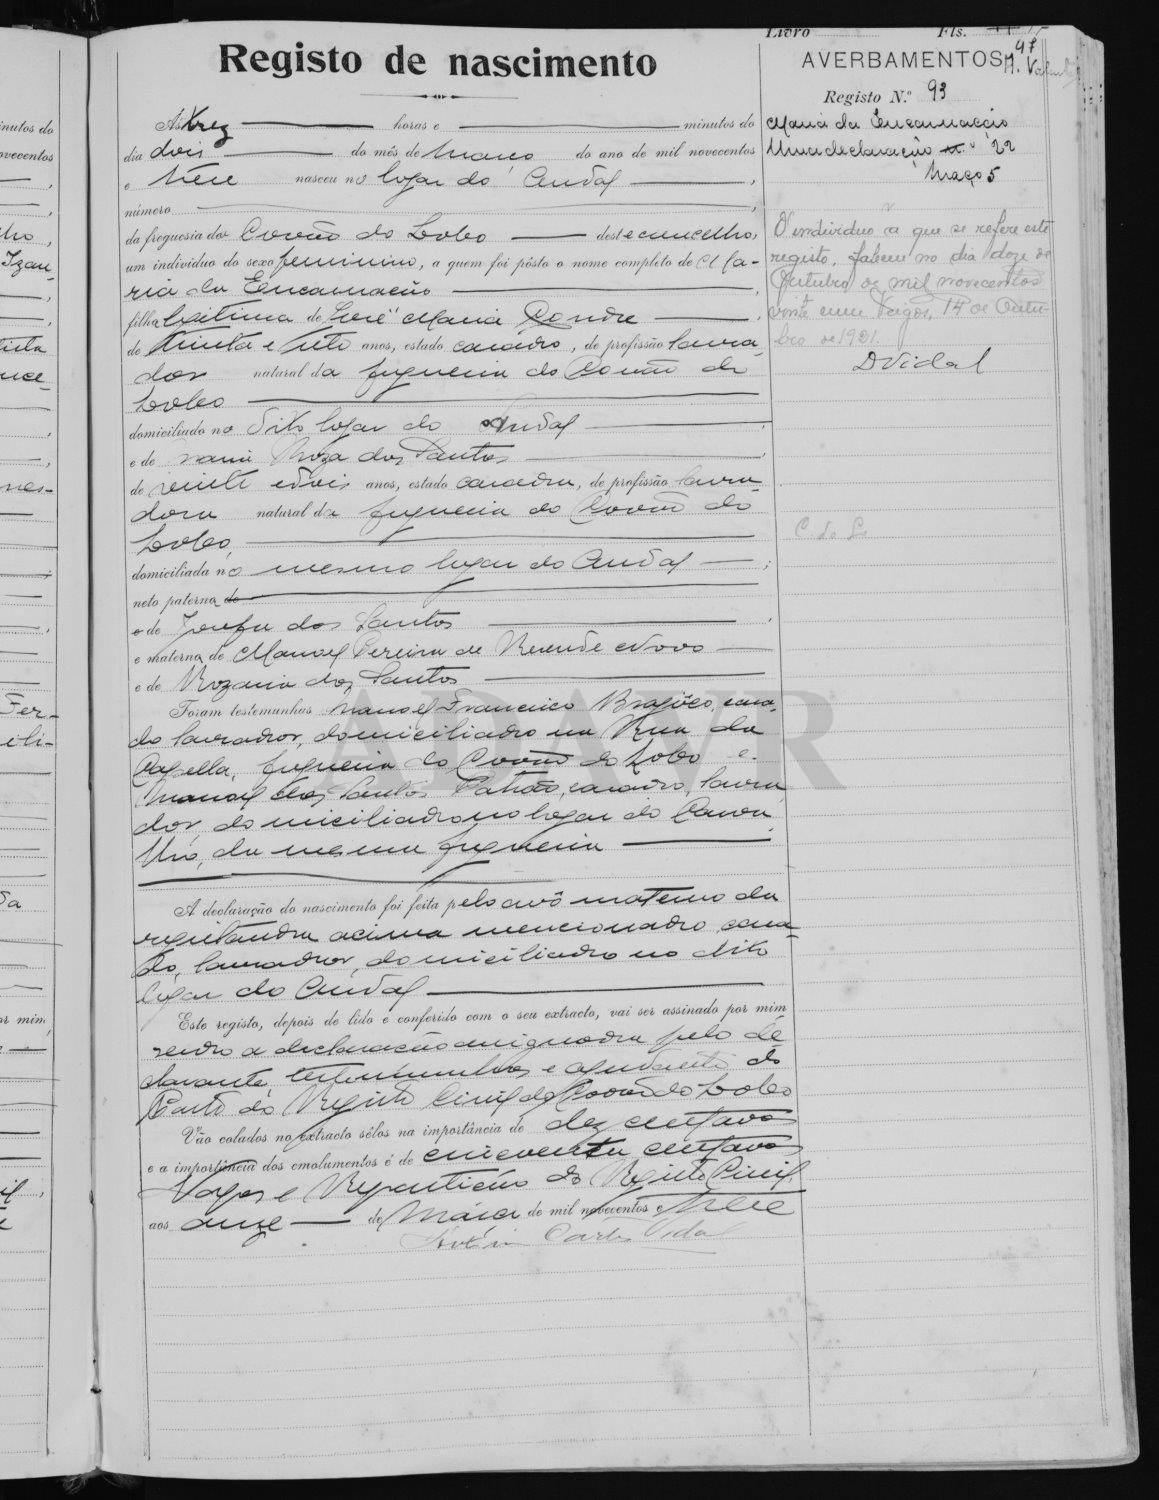 Livro Fls.
47
Registo de nascimento
AVERBAMENTOS
Registo N.º 93
Ás trez horas e minutos do
dia dois do mês de Março do ano de mil novecentos
e treze nasceu no logar do Andal,
número
da freguesia do Covão do Lobo deste concelho,
um individuo do sexo feminino, a quem foi pôsto o nome completo de Ma-
ria da Encarnação,
filha legitima de José Maria Condre,
de trinta e oito anos, estado casado, de profissão lavra-
dor natural da freguezia do Covão do
Lobo
domiciliado no dito logar do Andal,
e de Maria Roza dos Santos,
de vinte e dois anos, estado casada, de profissão lavra-
dora natural da freguezia do Covão do
Lobo,
domiciliada no mesmo logar do Andal;
neto paterna de
e de Josefa dos Santos,
e materna de Manoel Pereira de Rezende Novo
e de Rozaria dos Santos
Foram testemunhas Manoel Francisco casa-
do lavrador, domiciliado na Rua da
Capella, freguezia do Covão do Lobo e
Manoel dos Santos Patrão, casado, lavra-
dor, domiciliado no logar do
da mesma freguezia
A declaração do nascimento foi feita pelo avô materno da
registanda acima mencionado, casa-
do, lavrador, domiciliado no dito
logar do Andal
Este registo, depois de lido e conferido com o seu extracto, vai ser assinado por mim
sendo a declaração assignada pelo de-
clarante, testemunhas e ajudante do
Posto do Registo Civil do Covão do Lobo
Vão colados no extracto sêlos na importância de dez centavos
e a importância dos emolumentos é de cincoenta centavos
Vagos e Repartição do Registo Civil,
aos onze de Março de mil novecentos e treze
Carlos Vidal
Maria da Encarnação
Uma declaração n.º 22
Março 5
O individuo a que se refere este
registo, faleceu no dia doze de
Outubro de mil novecentos
vinte e um. Vagos, 14 de Outu-
bro de 1921.
DVidal
C. do L.
ADAVR